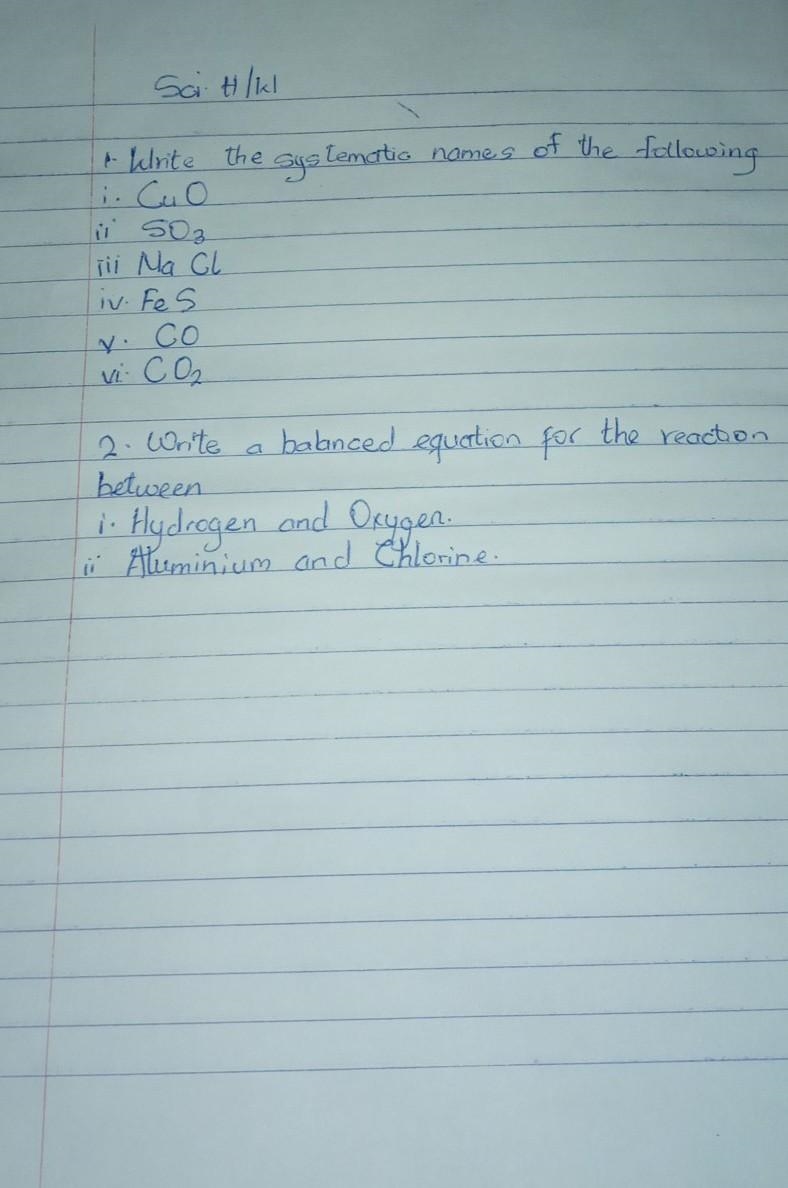 Sci. H/W
1. Write the systematic names of the following
i. CuO
ii SO3
iii Na Cl
iv. Fe S
v. CO
vi. CO2
2. Write a balanced equation for the reaction
between
i. Hydrogen and Oxygen.
ii Aluminium and Chlorine.